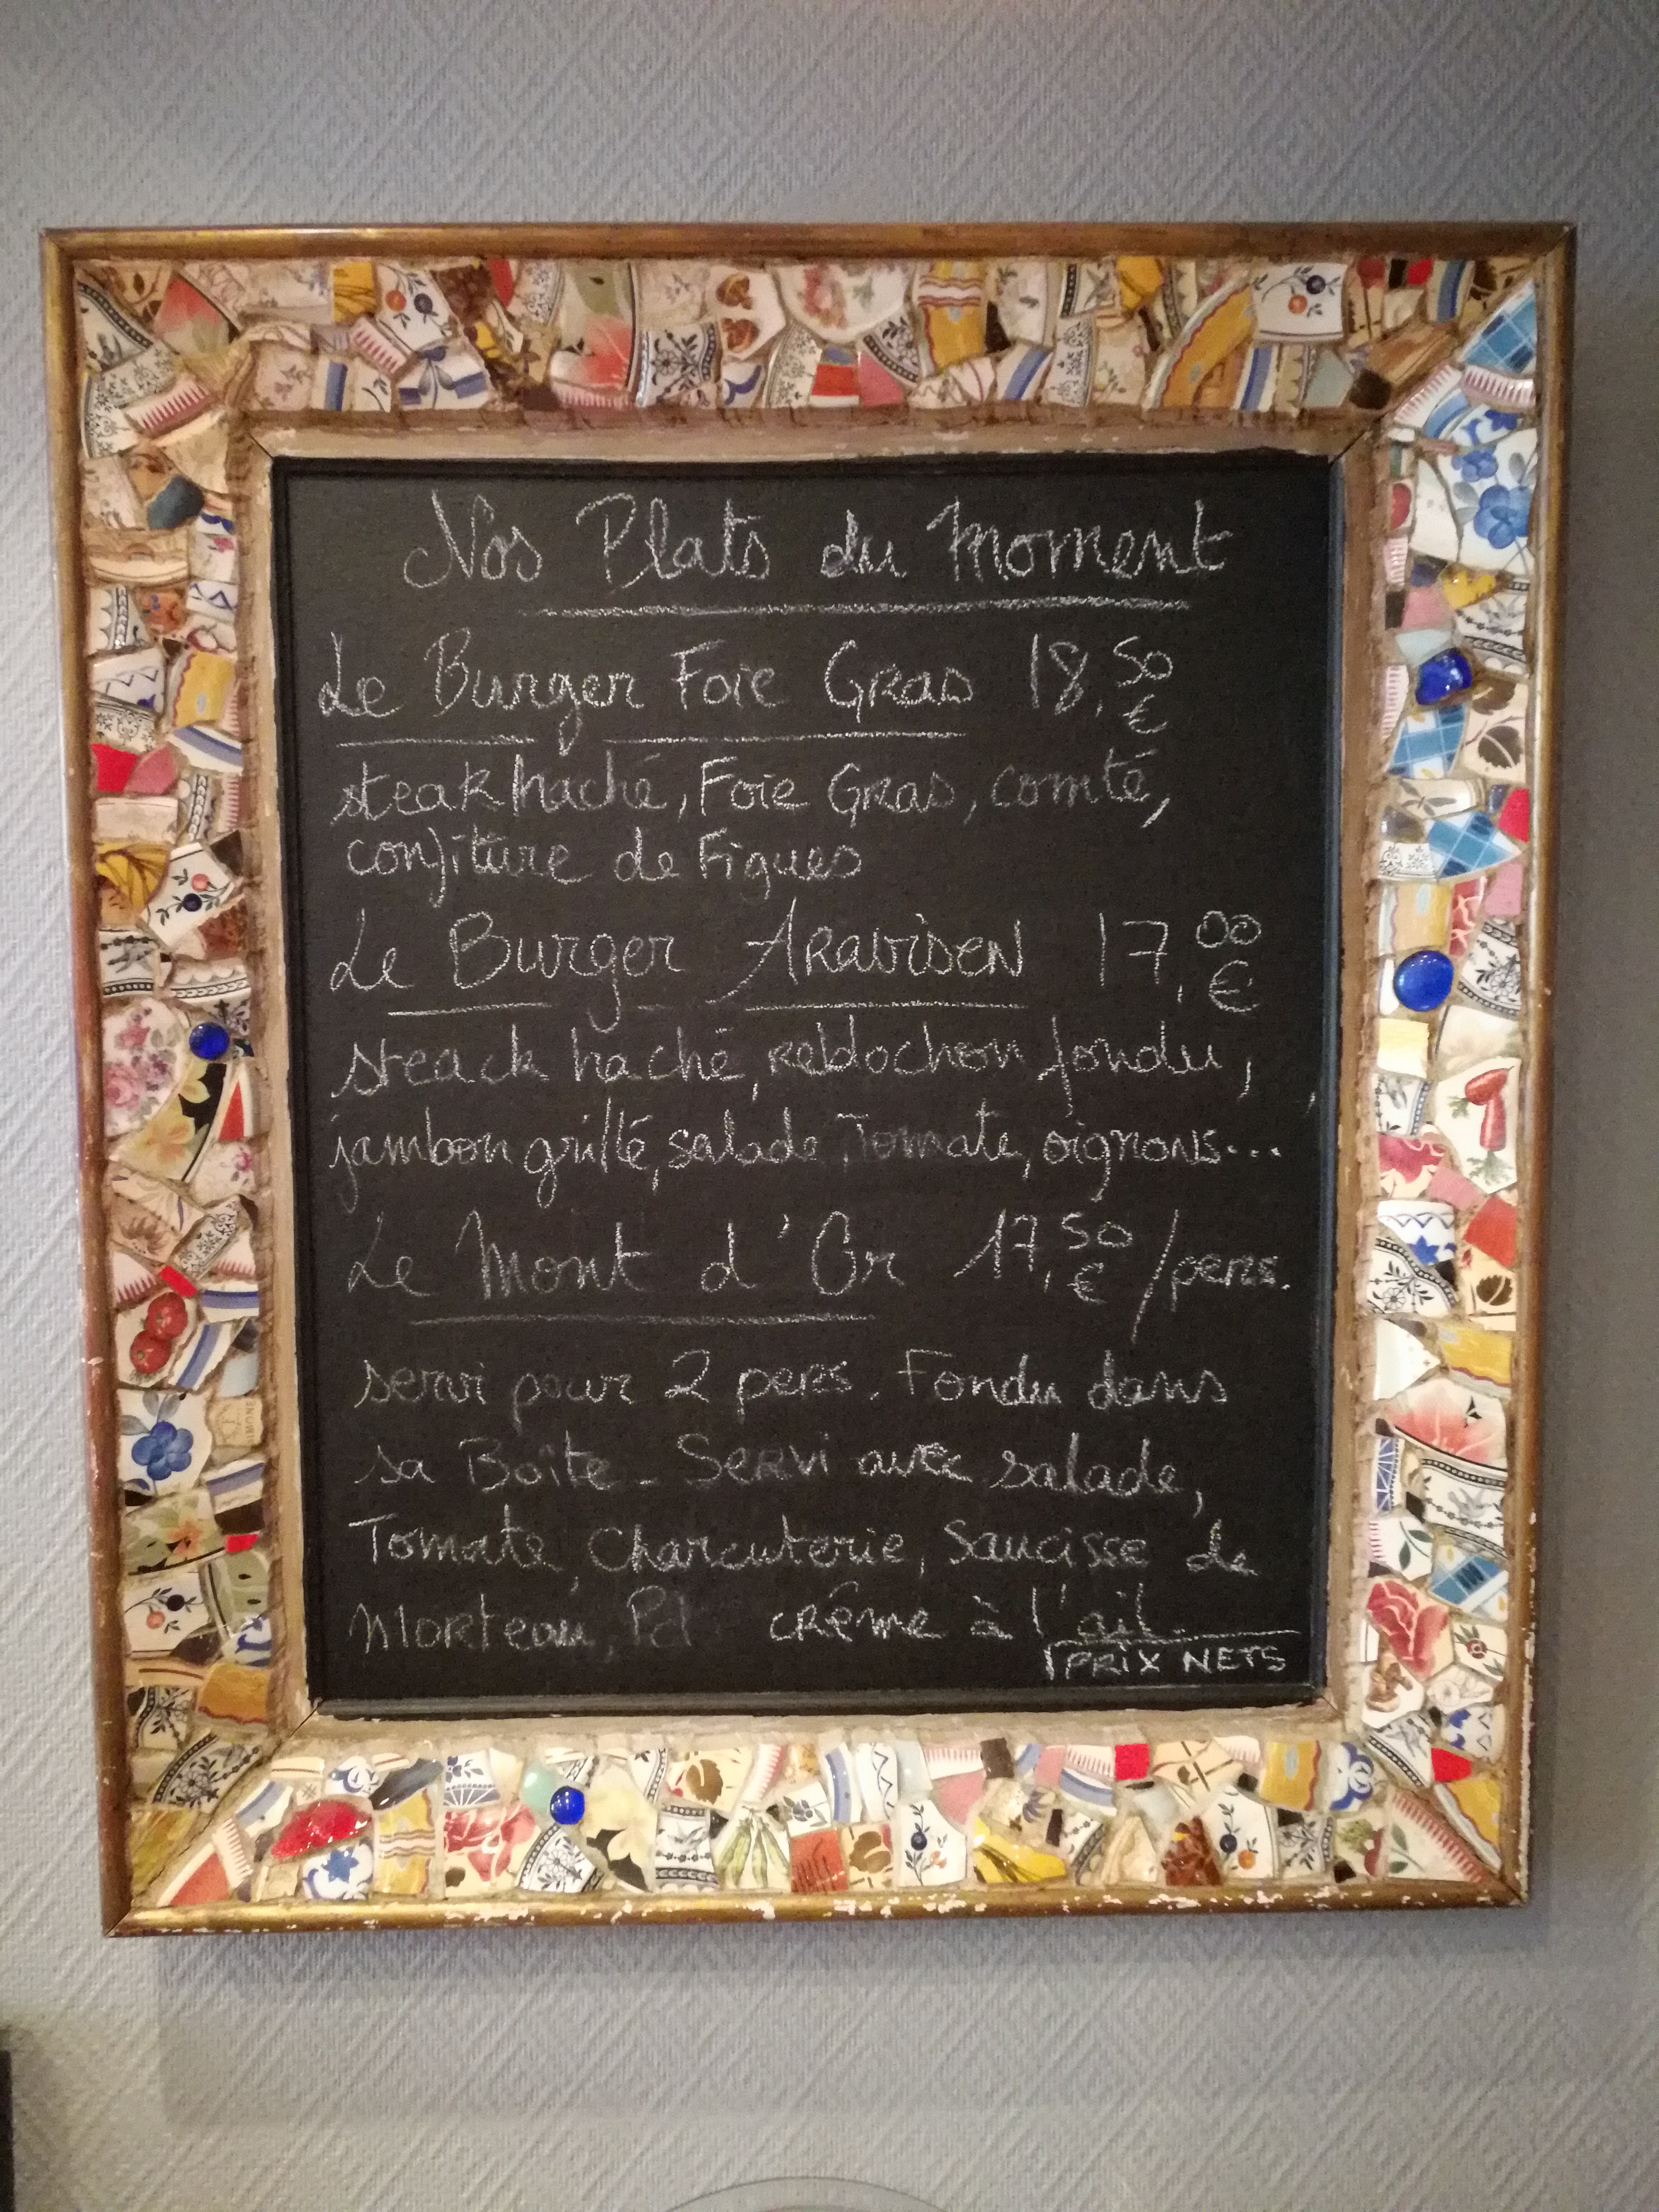 Nos Plats du moment
Le Burger Foie Gras 18,50 €
steak haché, Foie Gras, comté,
confiture de Figues
Le Burger Aravisen 17,00 €
steack haché, reblochon fondu,
jambon grillé, salade, Tomate, oignons...
Le Mont d'Or 17,50 € /pers.
servi pour 2 pers. Fondu dans
sa Boîte - Servi avec salade,
Tomate, Charcuterie, Saucisse de
Morteau, Pdt crème à l'ail.
PRIX NETS